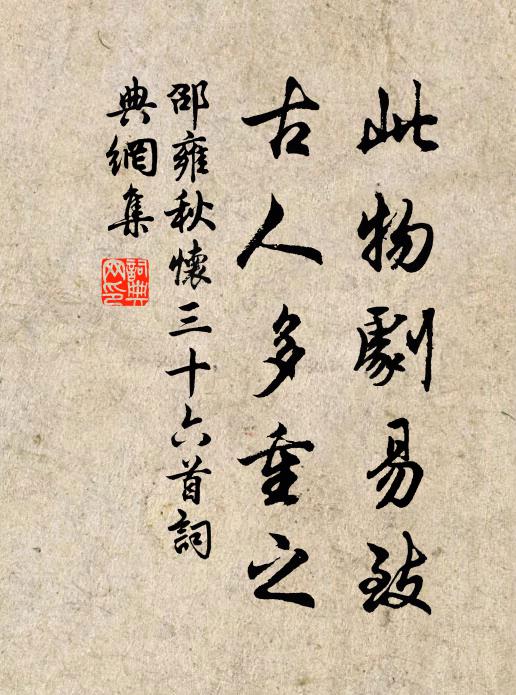 此物劇易致
古人多重之
邵雍秋懷三十六首詞
典網集
詞典
网印